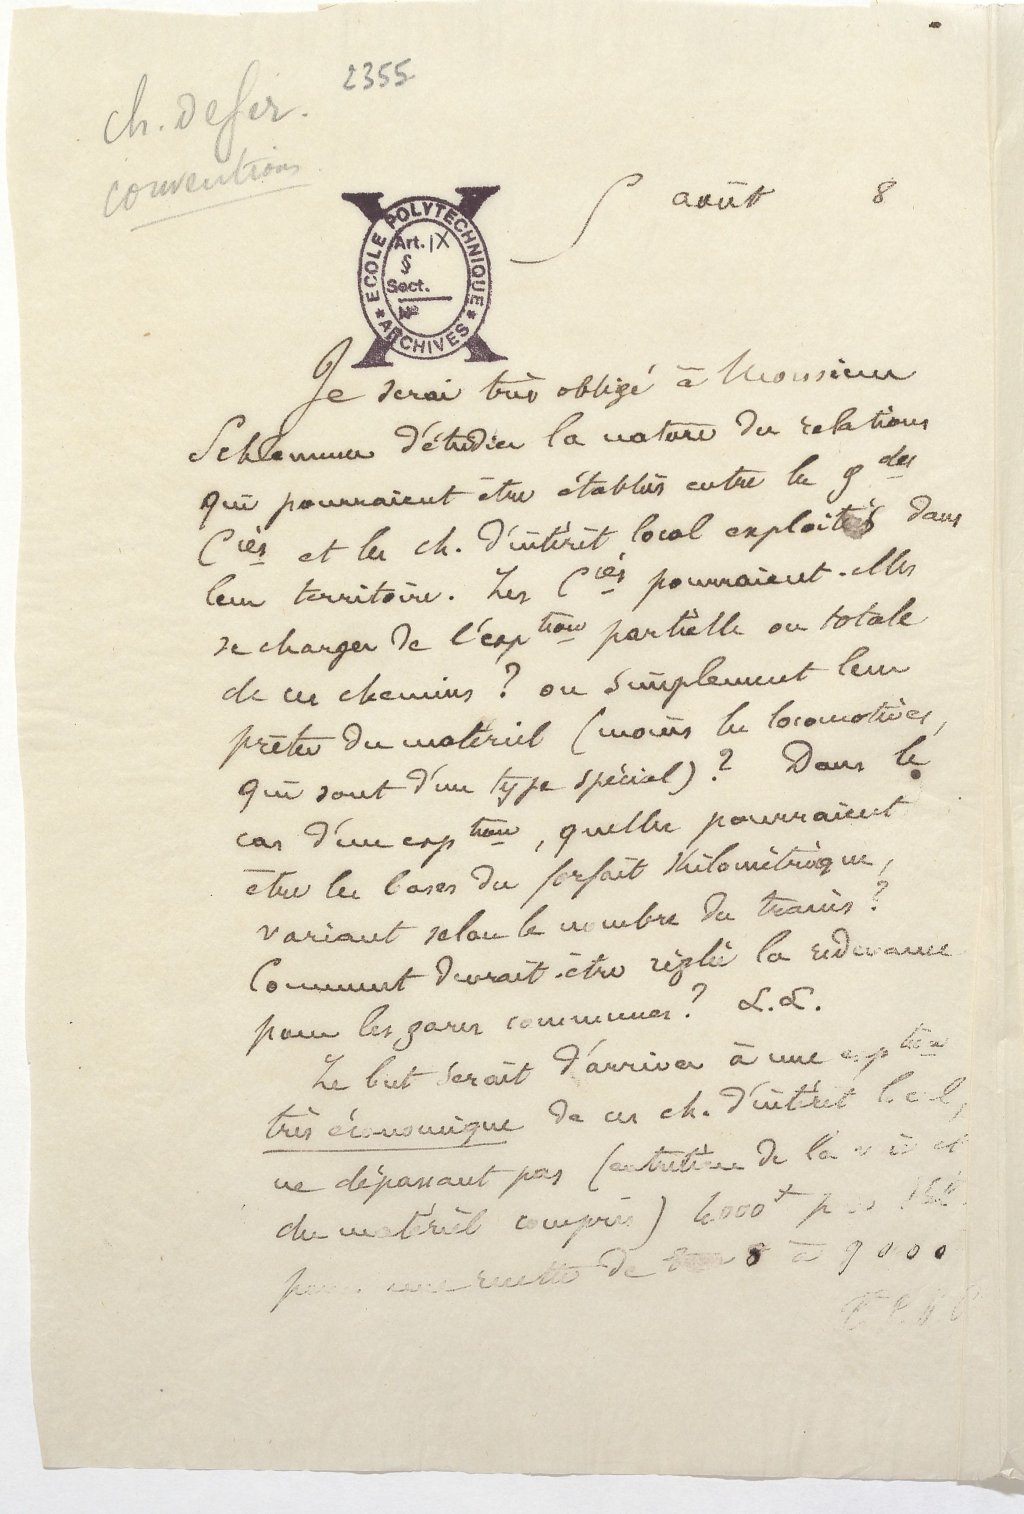 2355
ch. de fer.
conventions
5 août 8
ECOLE POLYTECHNIQUE
ARCHIVES
Art. IX
§
Sect.
No
Je serai très obligé à Monsieur
Schlemmer d'étudier la nature des relations
qui pourraient être établies entre les gdes
Cies et les ch. d'intérêt local exploités dans
leur territoire. Les Cies pourraient-elles
se charger de l'exption partielle ou totale
de ces chemins ? ou simplement leur
prêter du matériel (moins les locomotives,
qui sont d'un type spécial) ? Dans le
cas d'une exption, quelles pourraient
être les bases du forfait kilométrique,
variant selon le nombre des trains ?
Comment devrait-être réglée la redevance
pour les gares communes ? &. &.
Le but serait d'arriver à une exption
très économique de ces ch. d'intérêt local,
ne dépassant pas (entretien de la voie et
du matériel compris) 4000f par Kil.
pour une recette de 8 à 9000